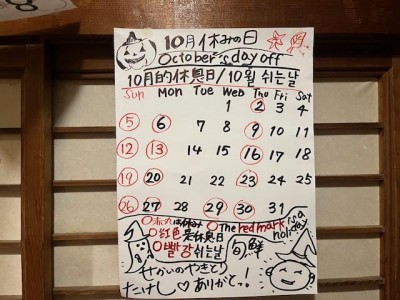 10月休みの日
October's day off
10月的休息日/10월 쉬는날
Sun Mon Tue Wed Thu Fri Sat
1 2 3 4
5 6 7 8 9 10 11
12 13 14 15 16 17 18
19 20 21 22 23 24 25
26 27 28 29 30 31
○赤丸は休み ○The red mark is a holiday
○红色是休息日
○빨강 쉬는날 旬鮮
せかいのやきとり
たけし♡ありがとう!